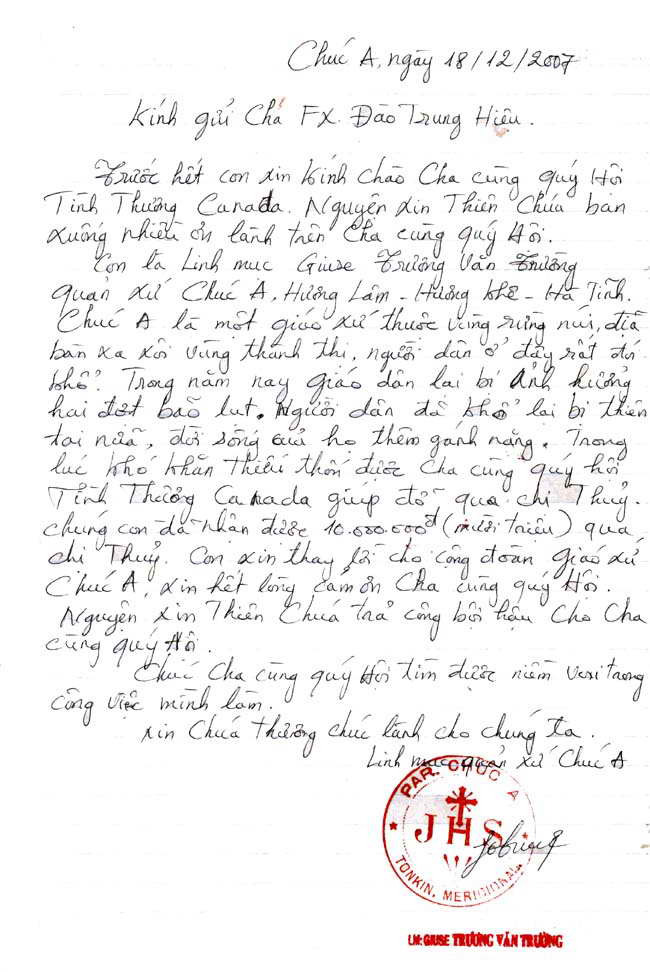 Chúc A, ngày 18/12/2007
Kính gửi Cha FX. Đào Trung Hiệu.
Trước hết con xin kính chào Cha cùng quý Hội
Tình Thương Canada. Nguyện xin Thiên Chúa ban
xuống nhiều ơn lành trên Cha cùng quý Hội.
Con là Linh mục Giuse Trương Văn Trường
quản xứ Chúc A, Hương Lâm - Hương Khê - Hà Tĩnh.
Chúc A là một giáo xứ thuộc vùng rừng núi, địa
bàn xa xôi vùng thành thi, người dân ở đây rất đói
khổ. Trong năm nay giáo dân lại bị ảnh hưởng
hai đợt bão lụt. Người dân đã khổ lại bị thiên
tai nữa, đời sống của họ thêm gánh nặng. Trong
lúc khó khăn thiếu thốn được Cha cùng quý hội
Tình Thương Canada giúp đỡ qua chị Thuỷ.
chúng con đã nhận được 10.000.000đ (mười triệu) qua
chị Thuỷ. Con xin thay lời cho cộng đoàn giáo xứ
Chúc A, xin hết lòng cám ơn Cha cùng quý Hội.
Nguyện xin Thiên Chúa trả công bội hậu cho Cha
cùng quý Hội.
Chúc Cha cùng quý Hội tìm được niềm vui trong
công việc mình làm.
xin Chúa thương chúc lành cho chúng ta.
Linh mục quản xứ Chúc A
PAR. CHUC A
JHS
TONKIN. MERICIONAL
LM: GIUSE TRƯƠNG VĂN TRƯỜNG